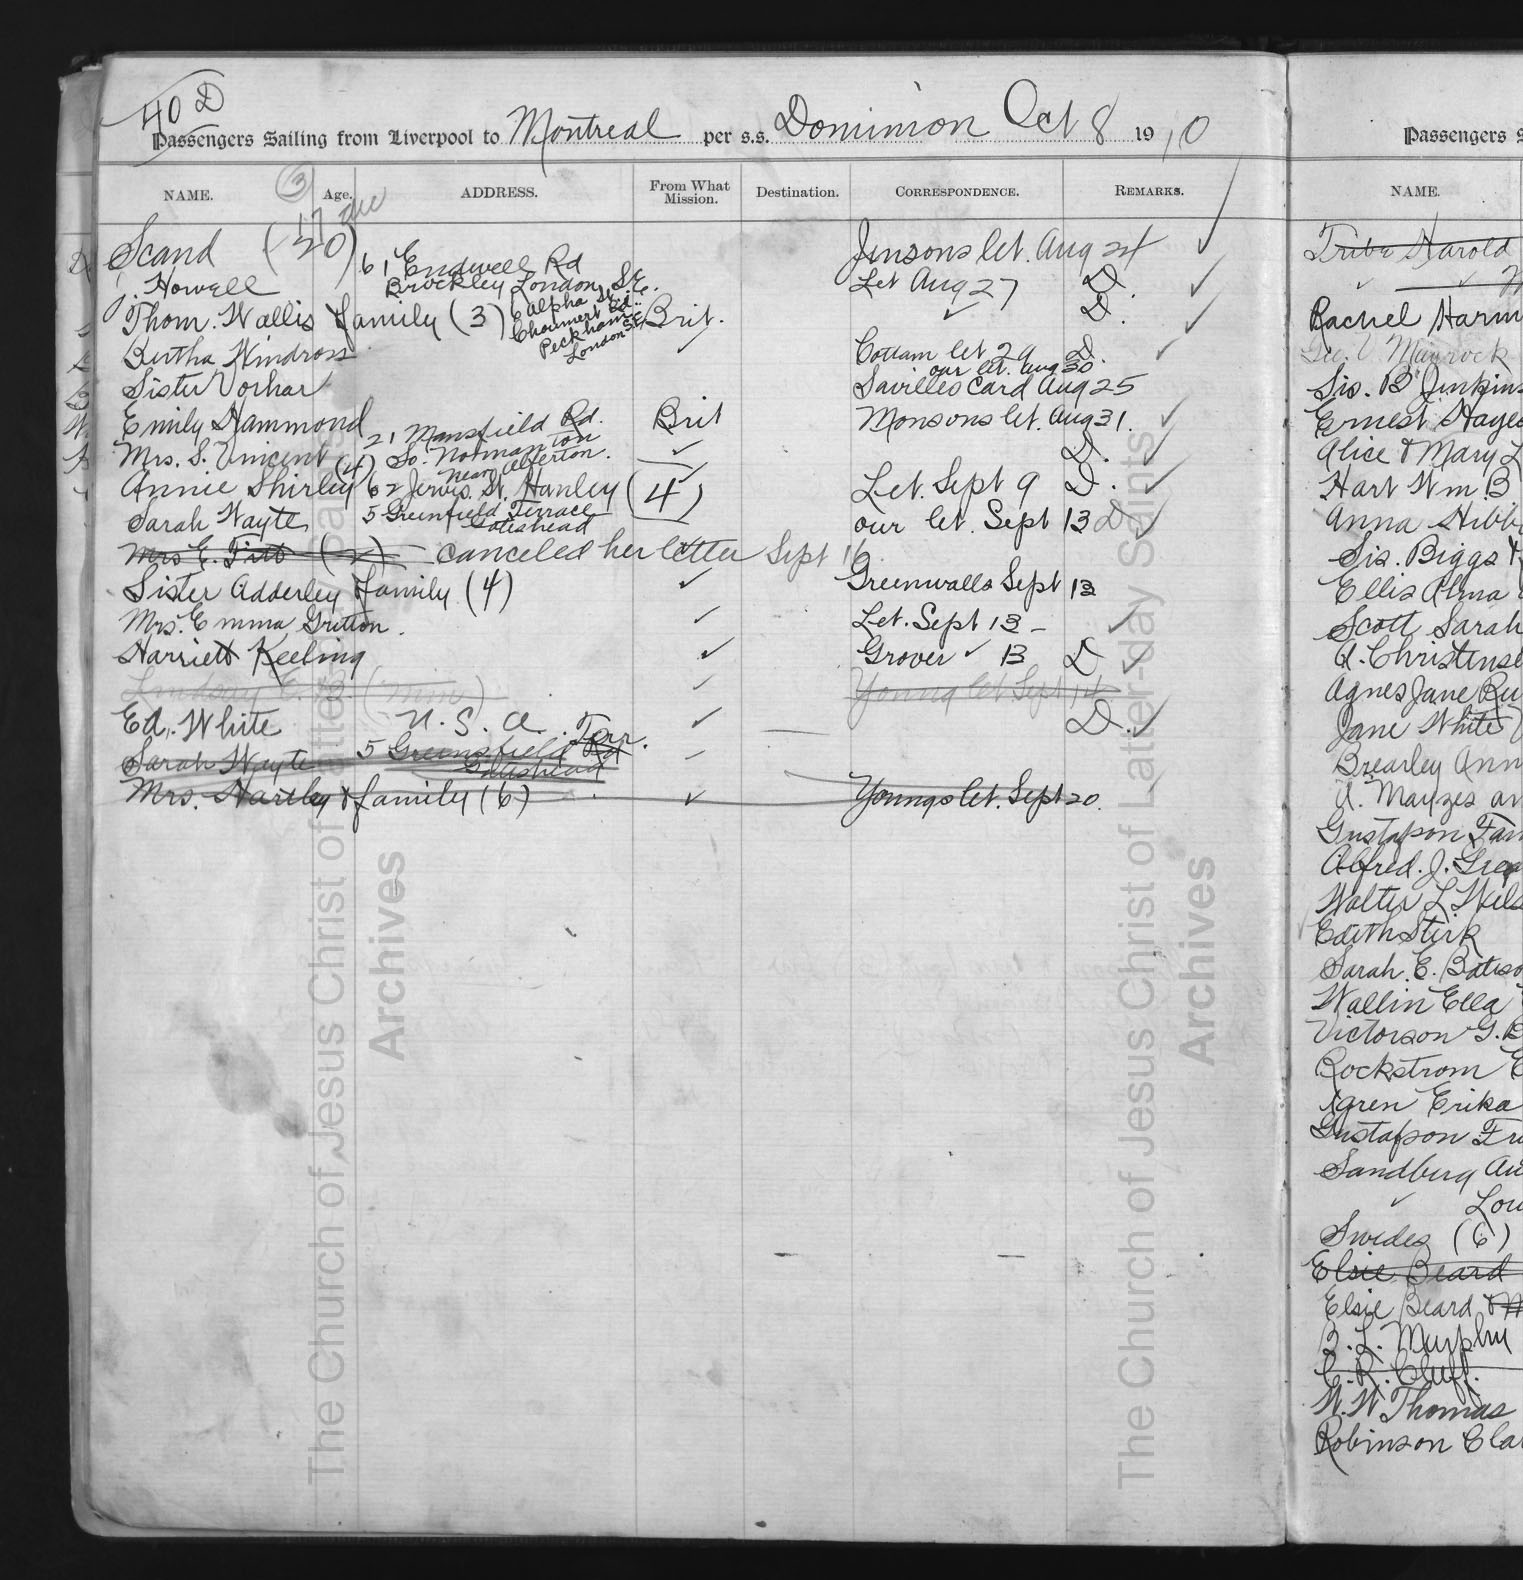 40 D
Passengers Sailing from Liverpool to Montreal per s.s. Dominion Oct 8 1910
NAME. Age. ADDRESS. From What Mission. Destination. CORRESPONDENCE. REMARKS.
3
17
Scand (20) Jensons let. Aug 24
J. Howell 61 Endwell Rd Brockley London, S.E. Let Aug 27 D.
Thom. Wallis & family (3) 6 Alpha St. Choumert Rd. Peckham London S.E. Brit. D.
Bertha Windross Cottam let 29 D.
our let. Aug 30
Sister Vorhar Savilles card Aug 25
Emily Hammond Brit Monsons let. Aug 31.
Mrs. S. Vincent (4) 21 Mansfield Rd. So. Normanton near Alferton. D.
Annie Shirley 62 Jervis St. Hanley (4) Let. Sept 9 D.
Sarah Wayte 5 Greenfield Terrace Gateshead our let. Sept 13 D
Mrs E. (2) canceled her letter Sept
Sister Adderley & family (4) Greenwalls Sept 13
Mrs. Emma Gritton. Let. Sept 13 -
Harriett Keeling Grover 13 D
Lindsay E. B. (Mrs) Young let Sept 14
Ed. White U. S. A. D.
Sarah Wayte 5 Greensfield Rd Terr. Gateshead
Mrs. Hartley & family (6) Youngs let. Sept 20.
Passengers
NAME.
Harold
Rachel
Mayrock
Sis. B. Jenkins
Ernest Hayes
Alice & Mary
Hart Wm. B
Anna
Sis. Biggs &
Ellis Alma
Scott Sarah
A.
Agnes Jane
Jane White
Brearley
Gustafson
Alfred. J.
Walter L.
Edith Stirk
Sarah. E.
Wallin Ella
Victorson G. B
Rockstrom
Erika
Gustafson
Sandberg
Swedes (6)
Elsie Beard
Elsie Beard &
B. L. Murphy
C. R. Cluff.
W. W. Thomas
Robinson
The Church of Jesus Christ of Latter-day Saints
Archives
The Church of Jesus Christ of Latter-day Saints
Archives